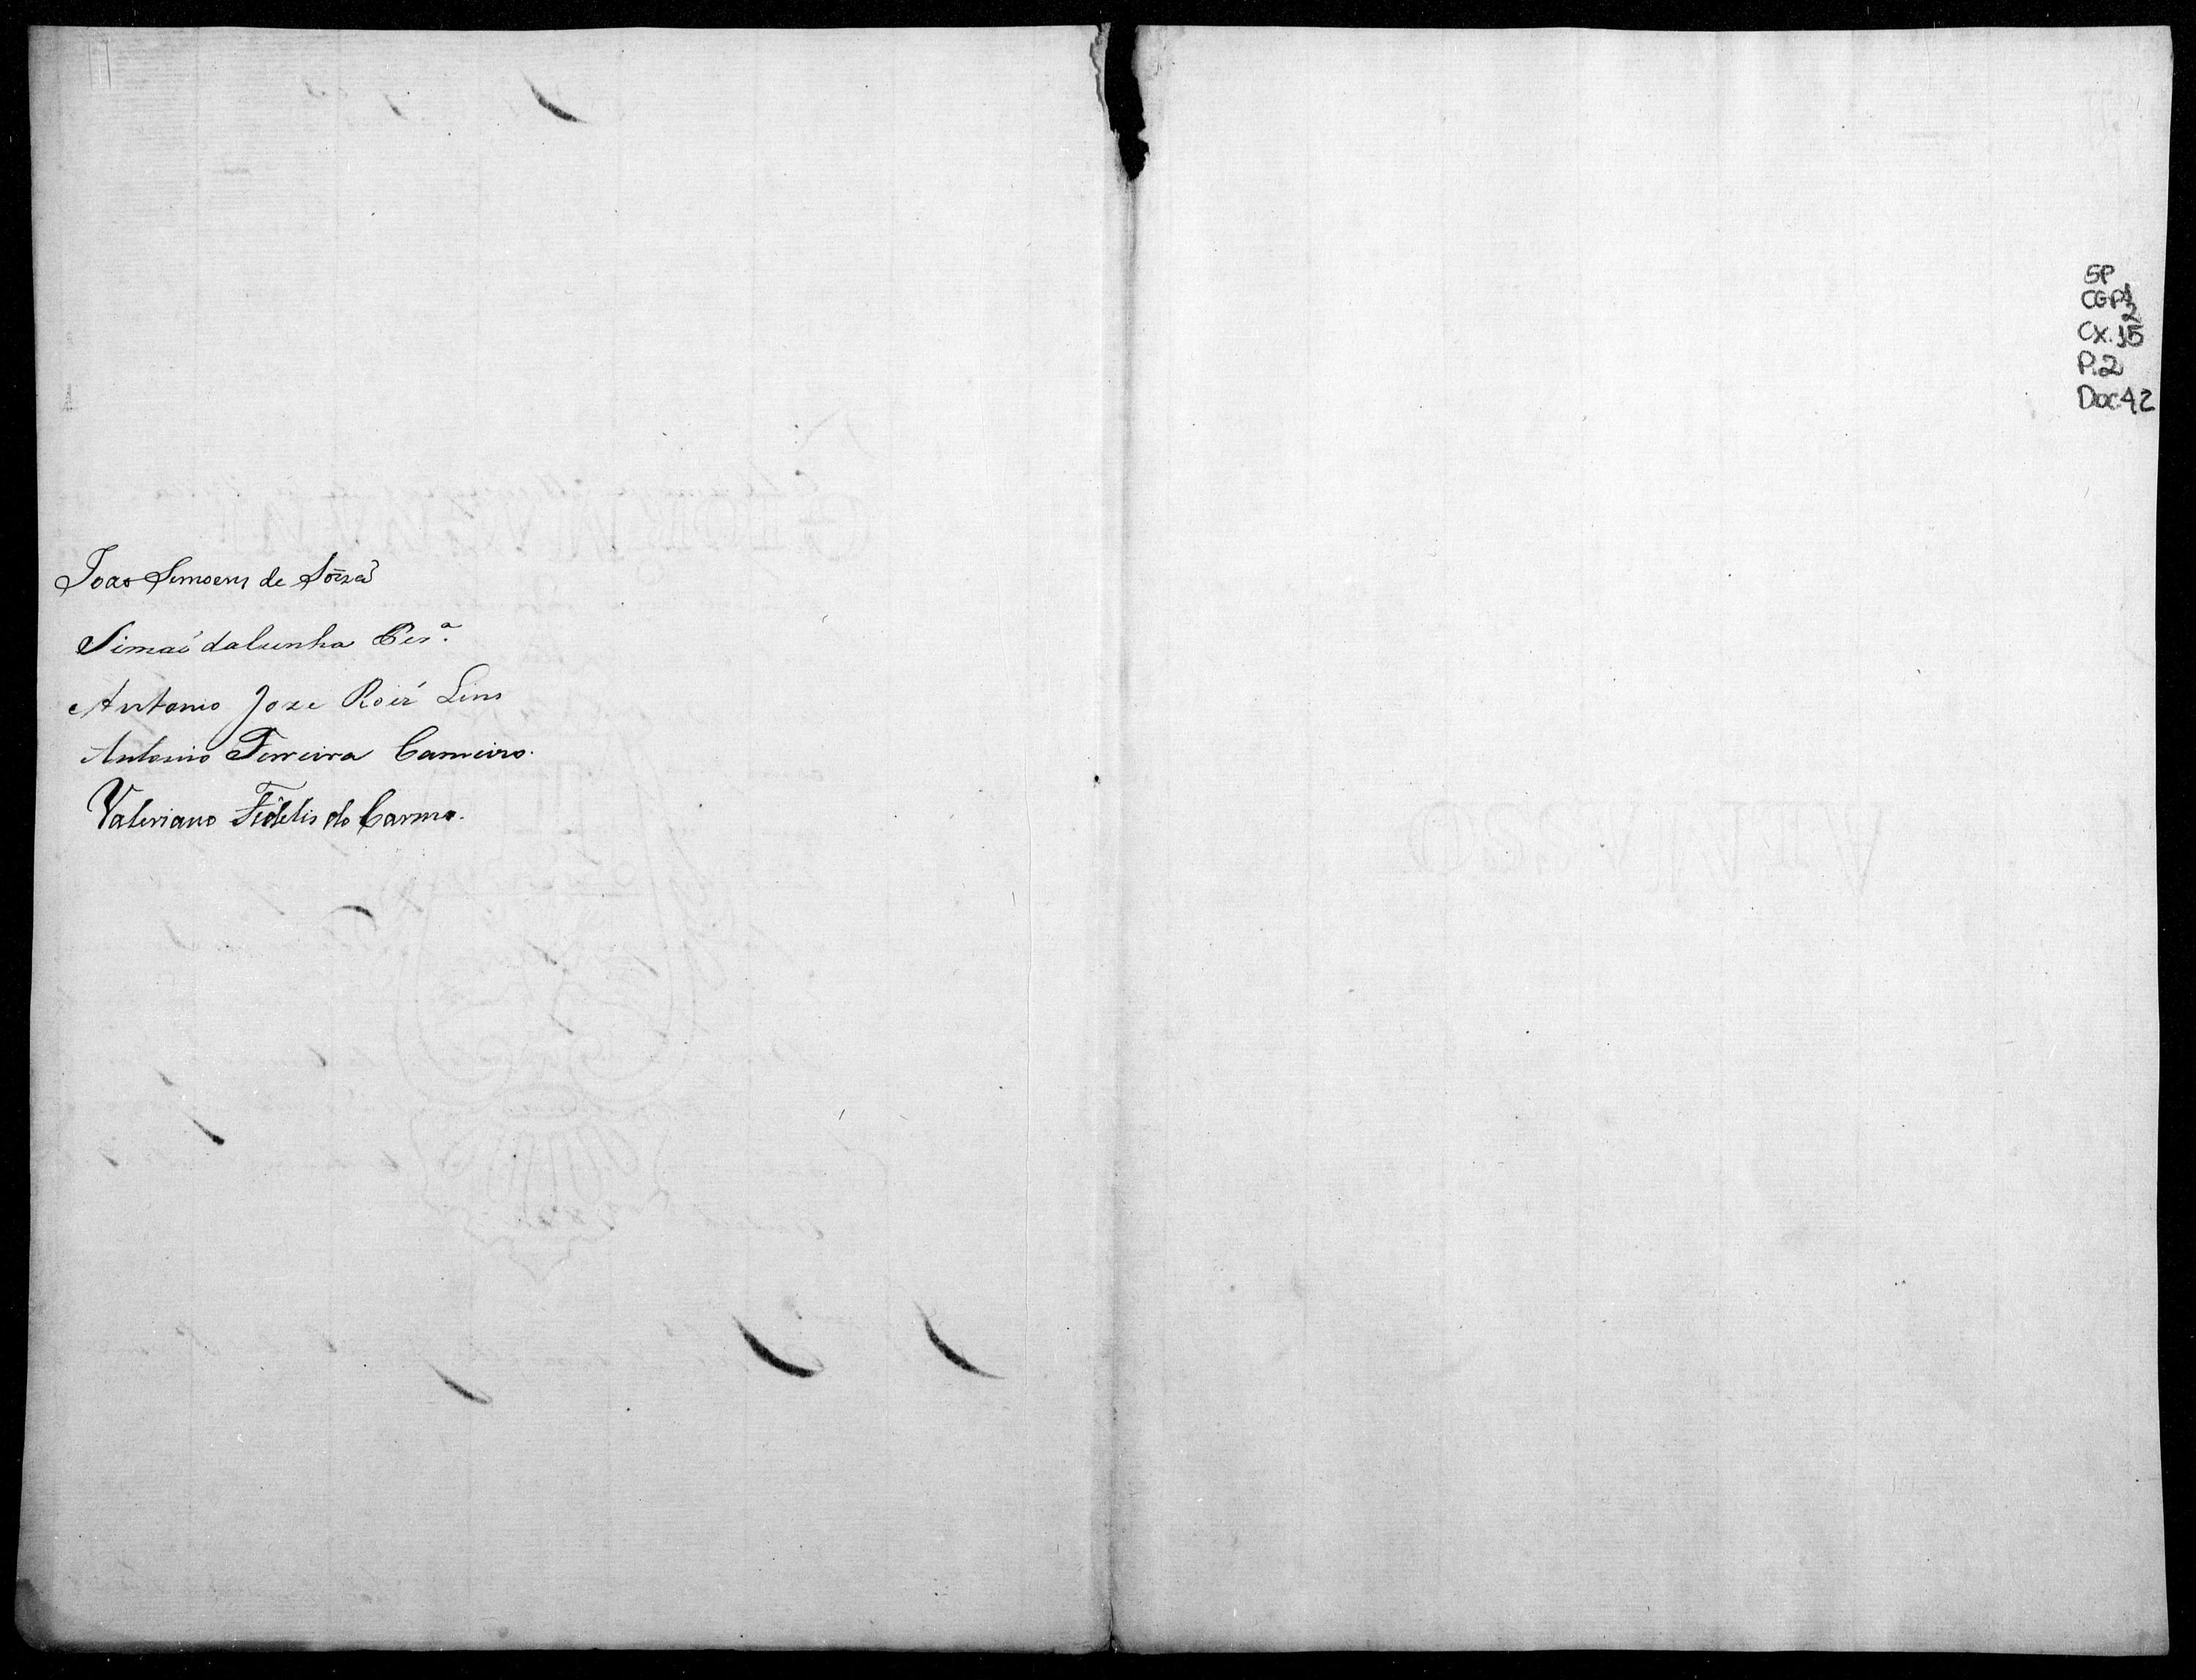 Joao Simoens de Souza
Simaõ da Cunha Per.ª
Antonio Joze Roiz Lins
Antonio Ferreira Carneiro.
Valeriano Fidelis do Carmo.
SP
CGP1
2
CX.15
P.2
Doc42